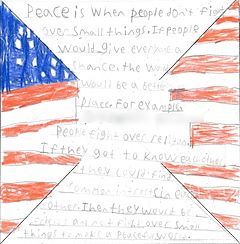 Peace is when people don't fight
over small things. If people
would give everyone a
chance. the world
would be a better
place. For example
People fight over religion.
If they got to know each other
they could find
common interest in each
other. Then they would be
friends and not fight over small
things to make a peaceful world.